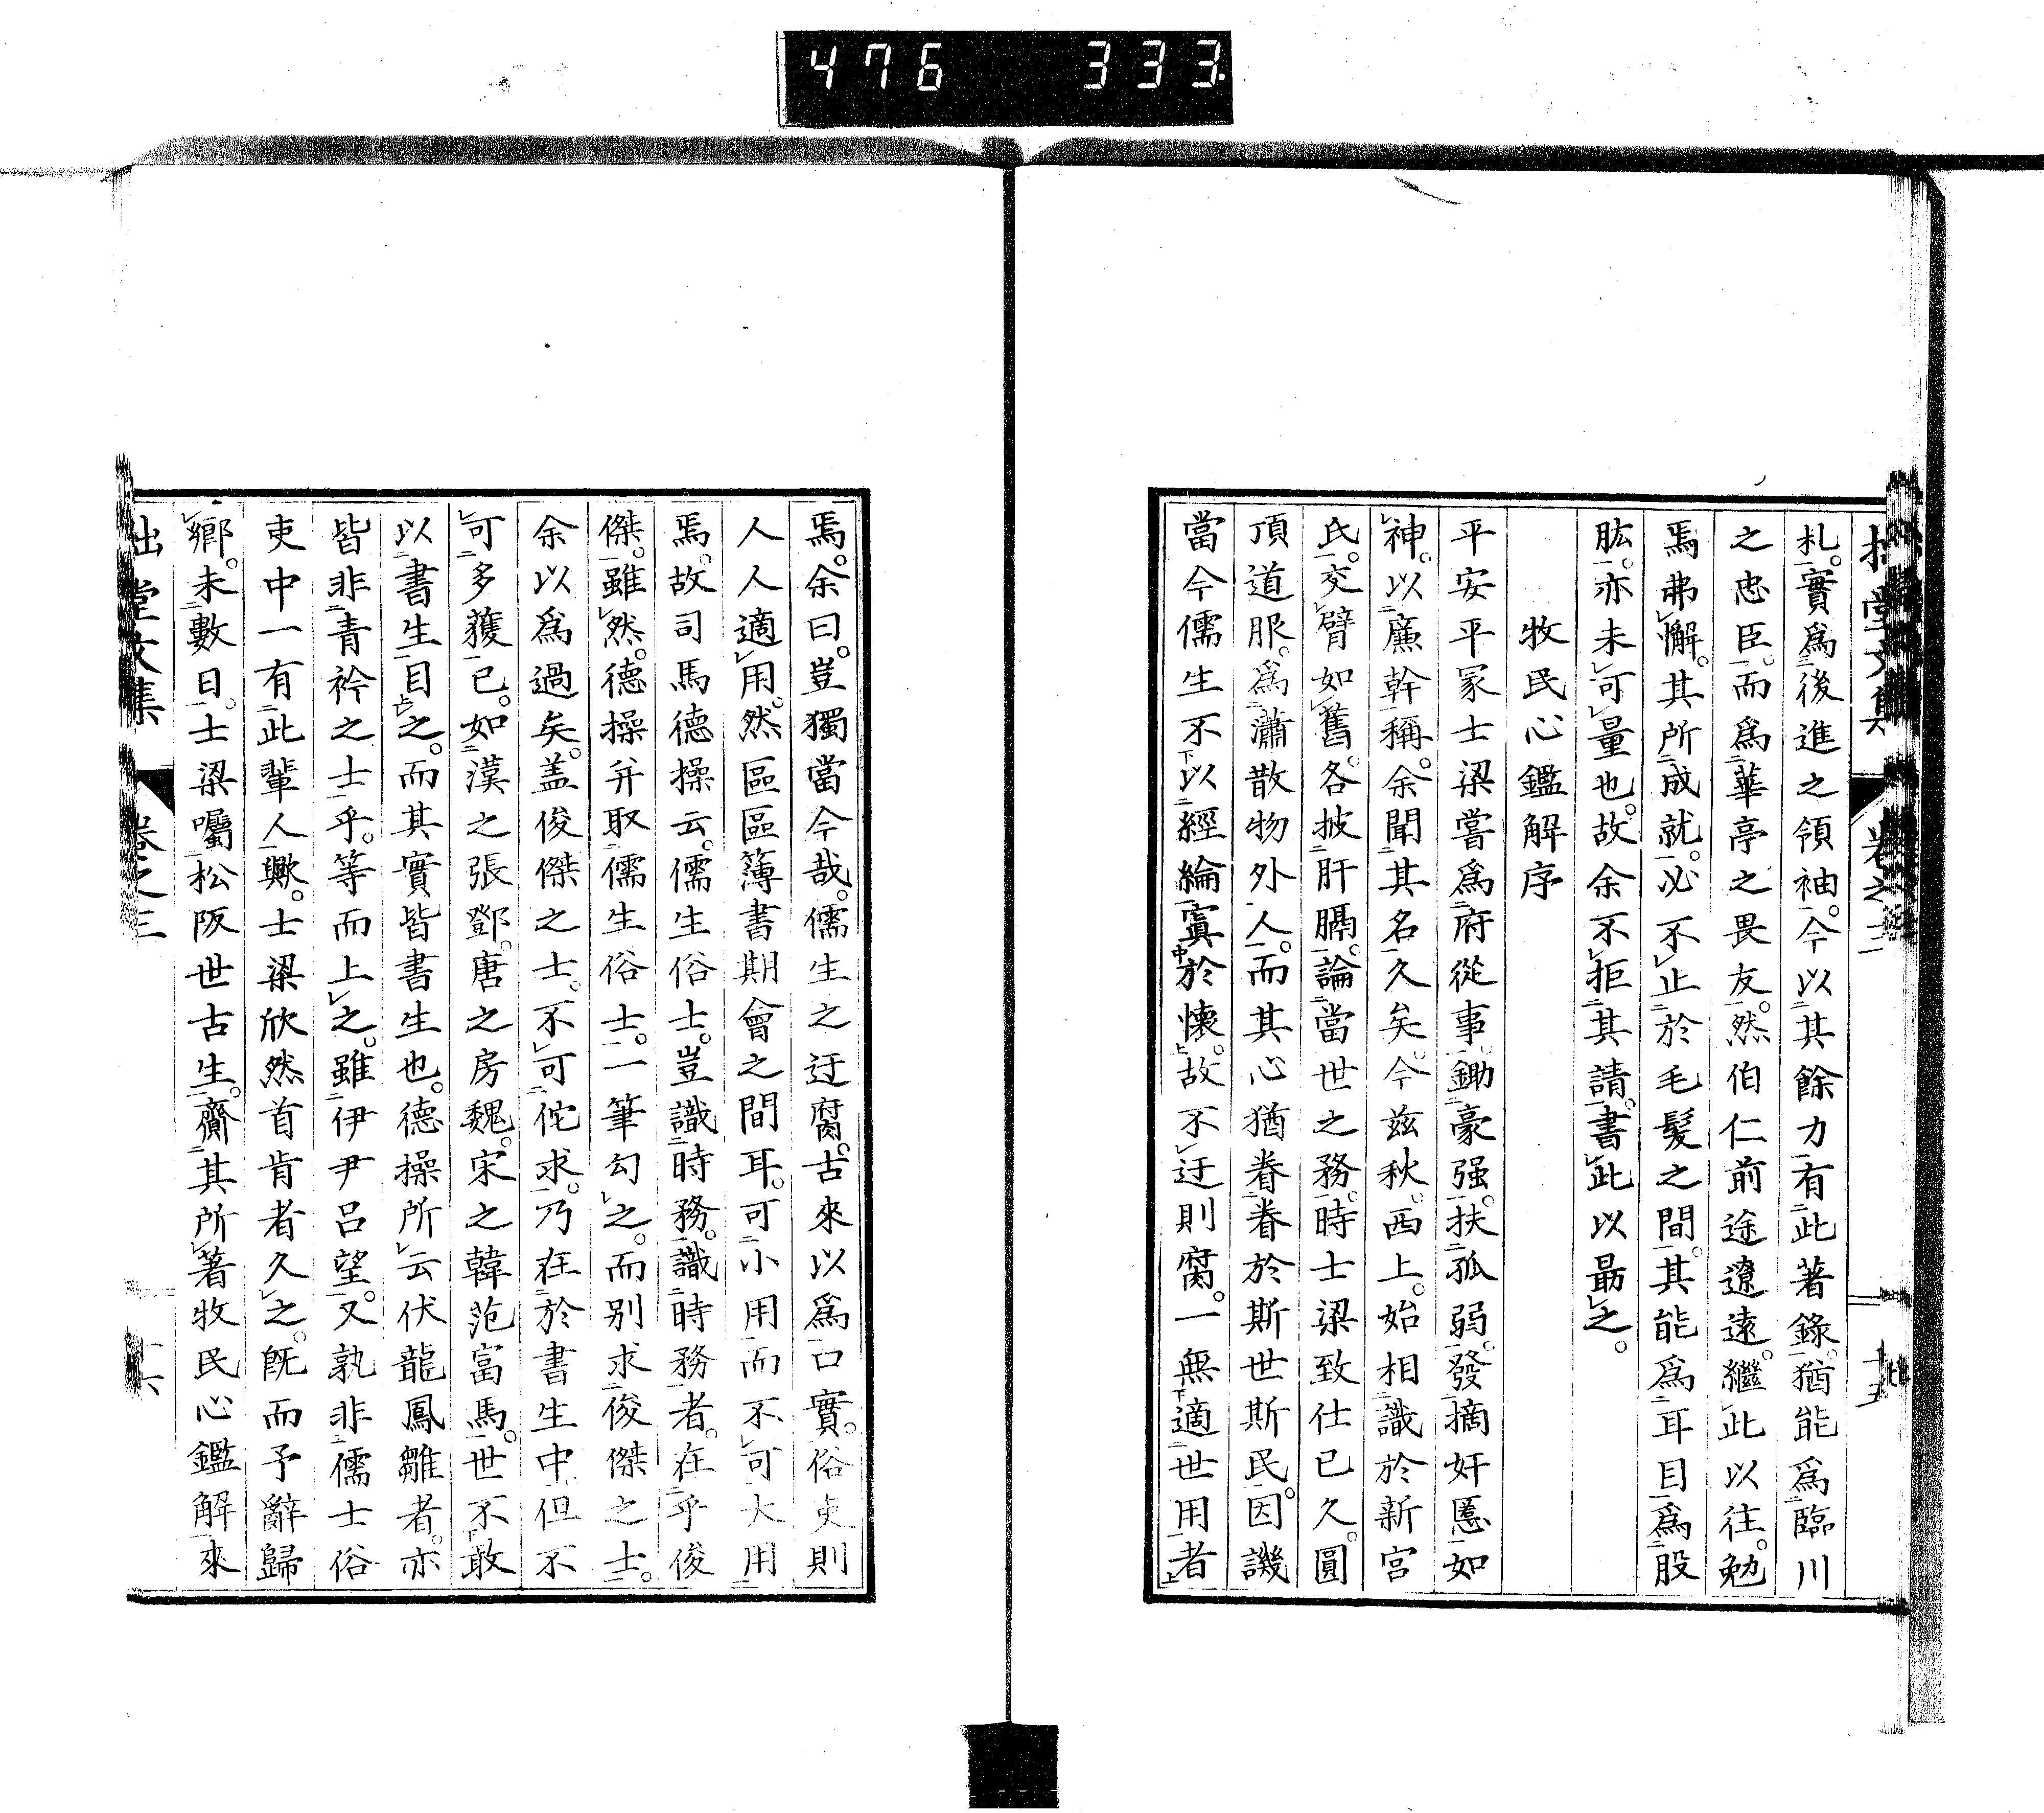 476 333
拙堂文集 卷之三 十五
札。實爲後進之領袖。今以其餘力有此著錄。猶能爲臨川
之忠臣。而爲華亭之畏友。然伯仁前途遼遠。繼此以往。勉
焉弗懈。其所成就。必不止於毛髮之間。其能爲耳目爲股
肱。亦未可量也。故余不拒其請。書此以勗之。
牧民心鑑解序
平安平冢士梁嘗爲府從事。鋤豪强。扶孤弱。發摘奸慝。如
神。以廉幹稱。余聞其名久矣。今茲秋。西上。始相識於新宮
氏。交臂如舊。各披肝膈。論當世之務。時士梁致仕已久。圓
頂道服。爲瀟散物外人。而其心猶眷眷於斯世斯民。因譏
當今儒生不以經綸寘於懷。故不迂則腐。一無適世用者
焉。余曰。豈獨當今哉。儒生之迂腐。古來以爲口實。俗吏則
人人適用。然區區簿書期會之間耳。可小用而不可大用
焉。故司馬德操云。儒生俗士。豈識時務。識時務者。在乎俊
傑。雖然。德操幷取儒生俗士。一筆勾之。而別求俊傑之士。
余以爲過矣。盖俊傑之士。不可佗求。乃在於書生中。但不
可多獲已。如漢之張鄧。唐之房魏。宋之韓范富馬。世不敢
以書生目之。而其實皆書生也。德操所云伏龍鳳雛者。亦
皆非青衿之士乎。等而上之。雖伊尹呂望。又孰非儒士俗
吏中一有此輩人歟。士梁欣然首肯者久之。旣而予辭歸
鄉。未數日。士梁囑松阪世古生。齎其所著牧民心鑑解來
拙堂文集 卷之三 十六